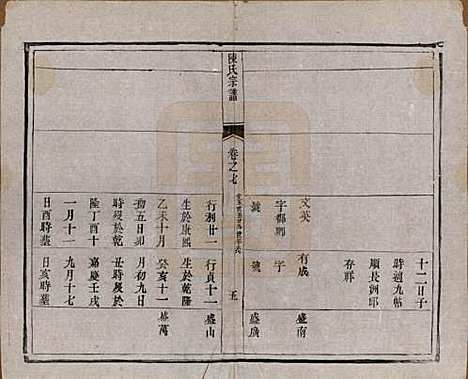 十二日子
時適九帖
順長洲邱
存祥
文英
有成
盛南
字郁卿
字
號
號
盛廣
陳氏宗譜
卷之七
行利廿一
行貞十二
盛山
生於康熙
生於乾隆
乙未十月
癸亥十一
盛萬
初五日卯
月初九日
時歿於乾
丑時歿於
隆丁酉十
嘉慶壬戌
一月十一
九月十七
日酉時墓
日亥時墓